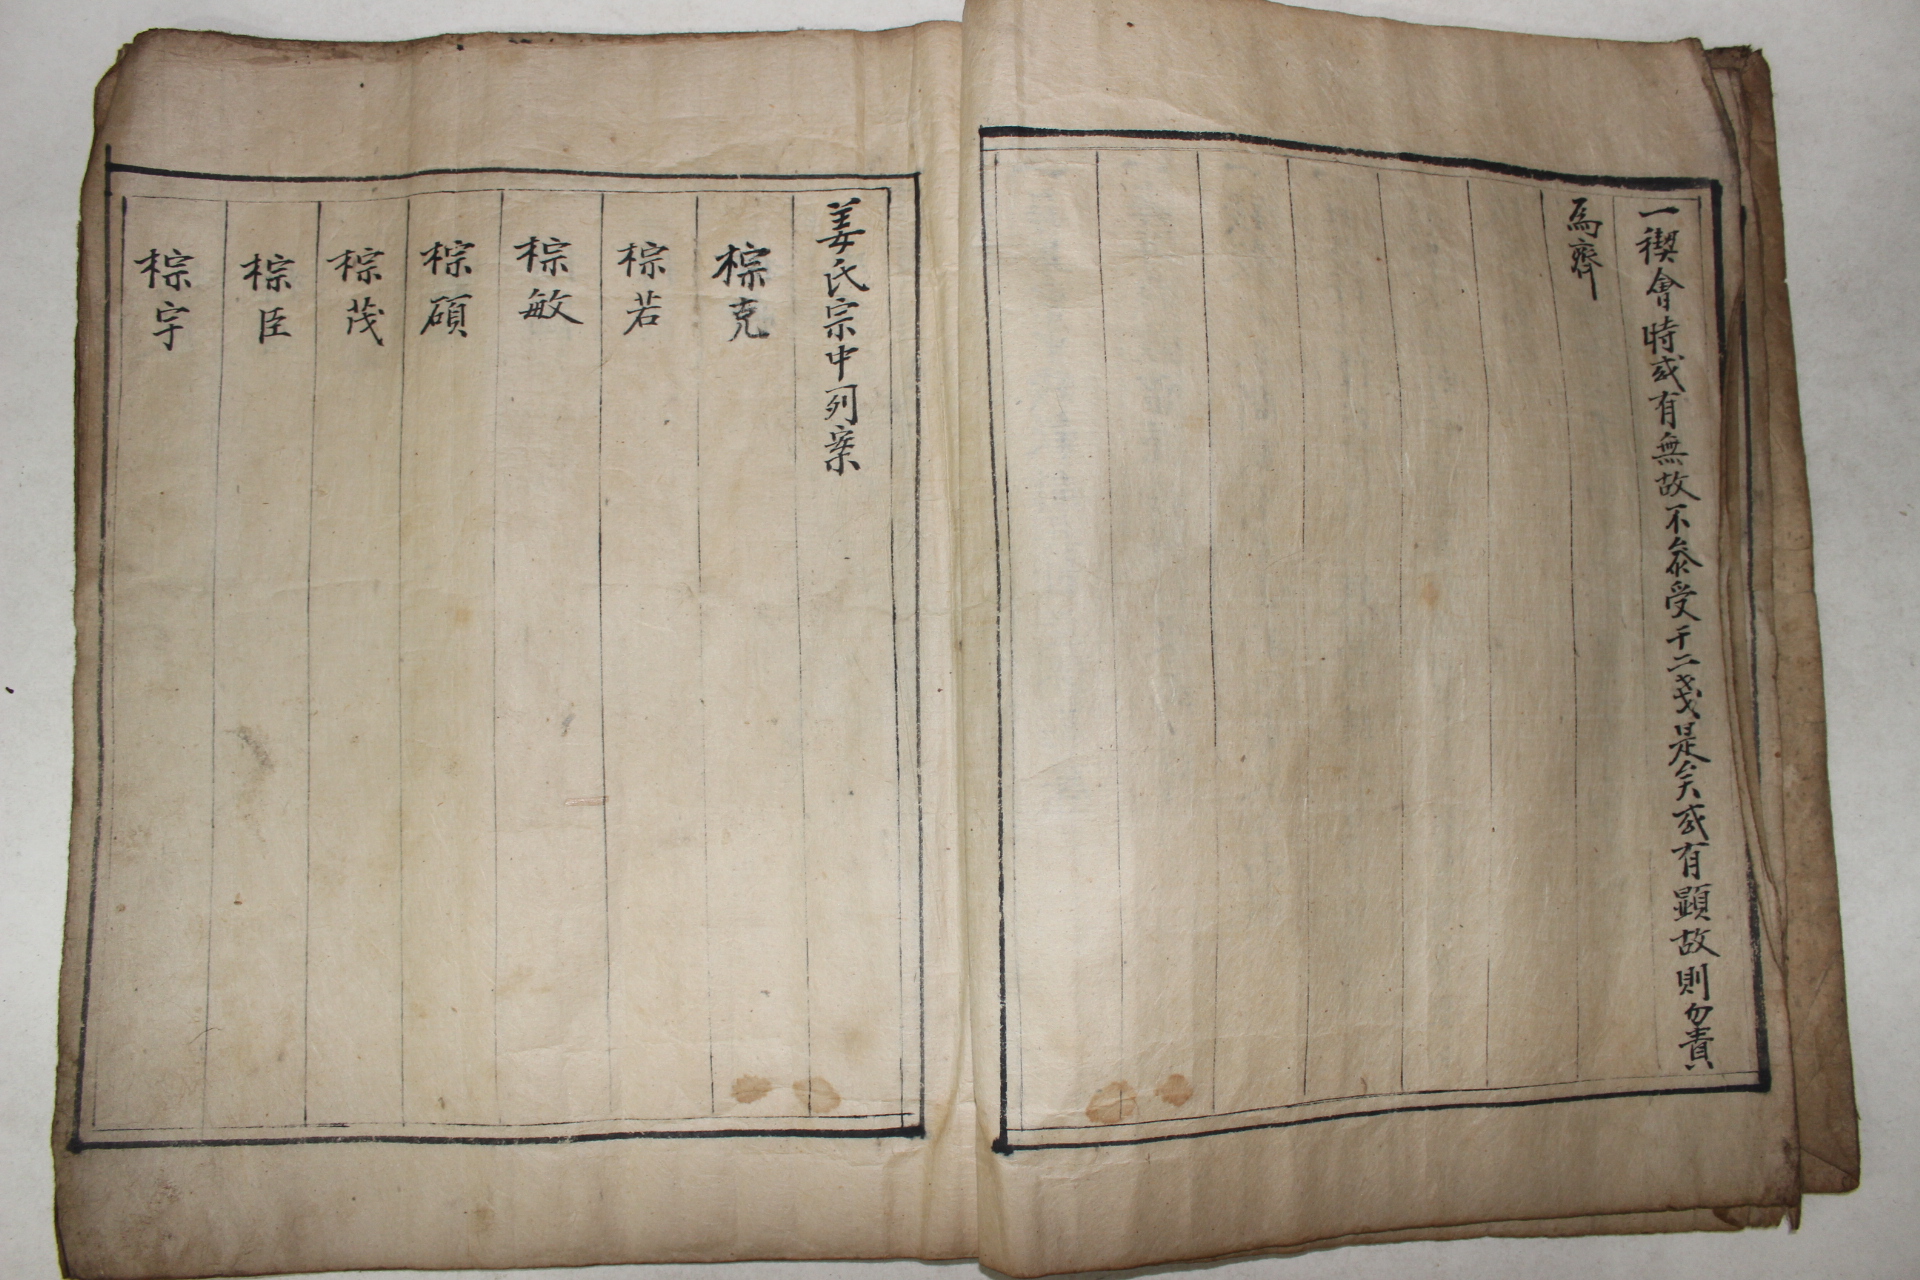 一稧會時或有無故不參受于二戔是矣或有顕故則勿責
爲齊
姜氏宗中列案
棕克
棕若
棕敏
棕碩
棕茂
棕臣
棕宇